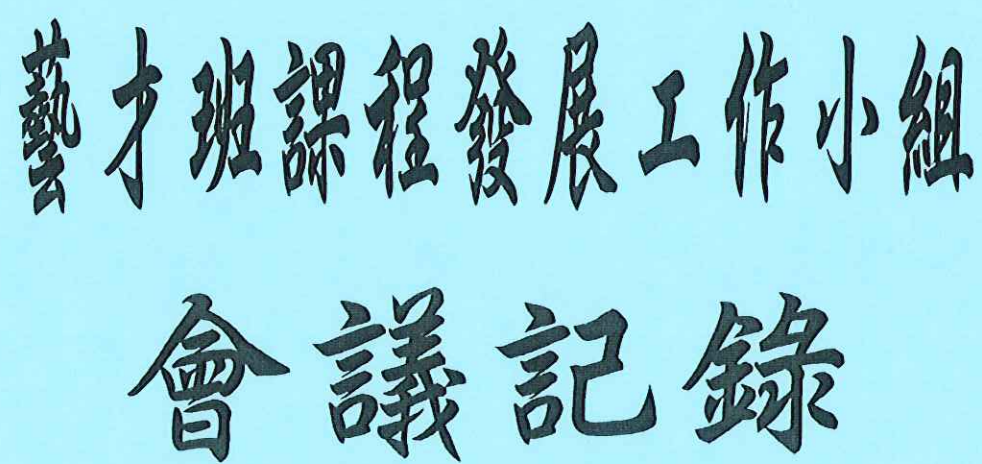 藝才班課程發展工作小組
會議記錄